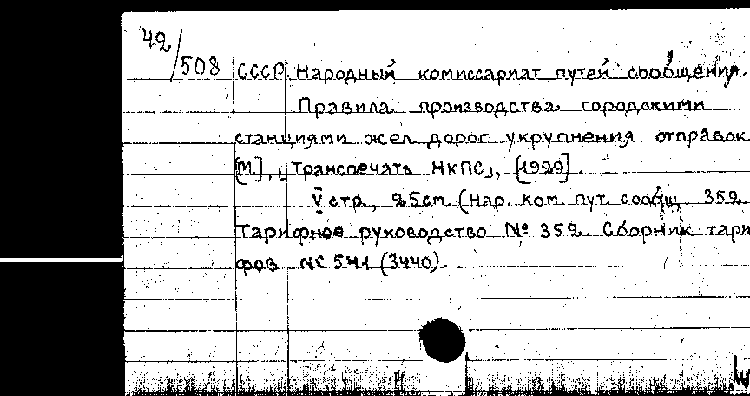 42/508 СССР. Народный комиссариат путей сообщения.
Правила производства городскими
станциями жел. дорог укрупнения отправок
[М.], „Транспечать НКПС", [1929].
V стр., 25 см. (Нар. ком. пут. сообщ. 352.
Тарифное руководство № 352. Сборник тари
фов № 541 (3440).